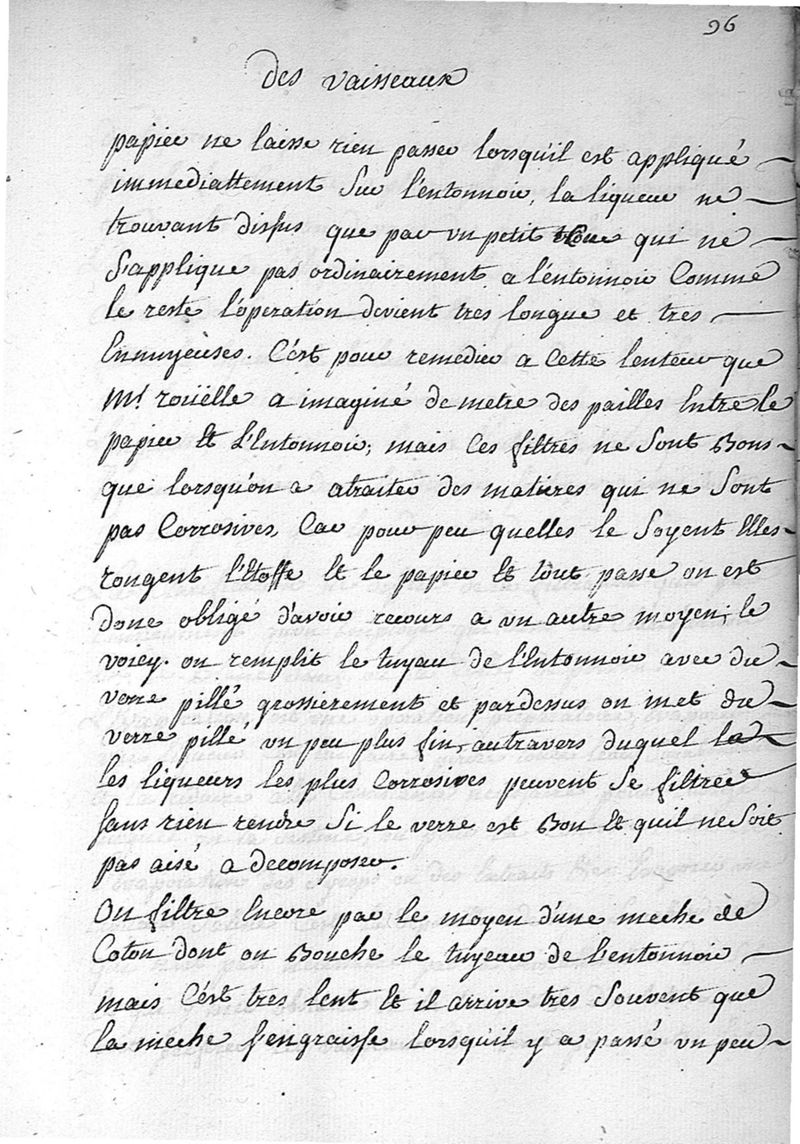 96
des vaisseaux
papier ne laisse rien passer lorsqu'il est appliqué
immediattement sur l'entonnoir, la liqueur ne
trouvant d'issus que par un petit qui ne
s'applique pas ordinairement a l'entonnoir Comme
le reste l'opération devient tres longue et tres
Ennuyeuses. C'ést pour remedier a Cette lenteur que
Mr. roüelle a imaginé de metre des pailles Entre le
papier Et L'Entonnoir; mais Ces filtres ne sont Bons
que lorsqu'on a atraiter des matieres qui ne sont
pas Corrosives, Car pour peu quelles le soyent Elles
rongent l'Etoffe Et le papier Et tout passe on est
donc obligé d'avoir recours a un autre moyen; le
voicy. on remplit le tuyau de l'Entonnoir avec du
verre pillé grossierement et pardessus on met du
verre pillé un peu plus fin, autravers duquel
les liqueurs les plus Corrosives peuvent se filtrer
sans rien rendre si le verre est Bon Et quil ne soit
pas aisé a decomposer.
On filtre Encore par le moyen d'une meche de
Coton dont on Bouche le tuyeau de l'entonnoir
mais C'ést tres lent Et il arrive tres souvent que
la meche s'engraisse lorsqu'il y a passé un peu